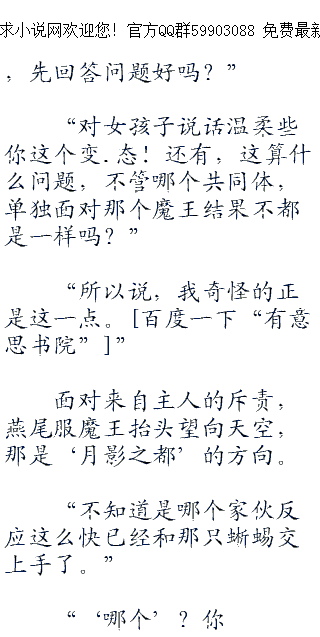 求小说网欢迎您！官方QQ群59903088 免费最新
，先回答问题好吗？”
“对女孩子说话温柔些
你这个变.态！还有，这算什
么问题，不管哪个共同体，
单独面对那个魔王结果不都
是一样吗？”
“所以说，我奇怪的正
是这一点。[百度一下“有意
思书院”]”
面对来自主人的斥责，
燕尾服魔王抬头望向天空，
那是‘月影之都’的方向。
“不知道是哪个家伙反
应这么快已经和那只蜥蜴交
上手了。”
“‘哪个’？你